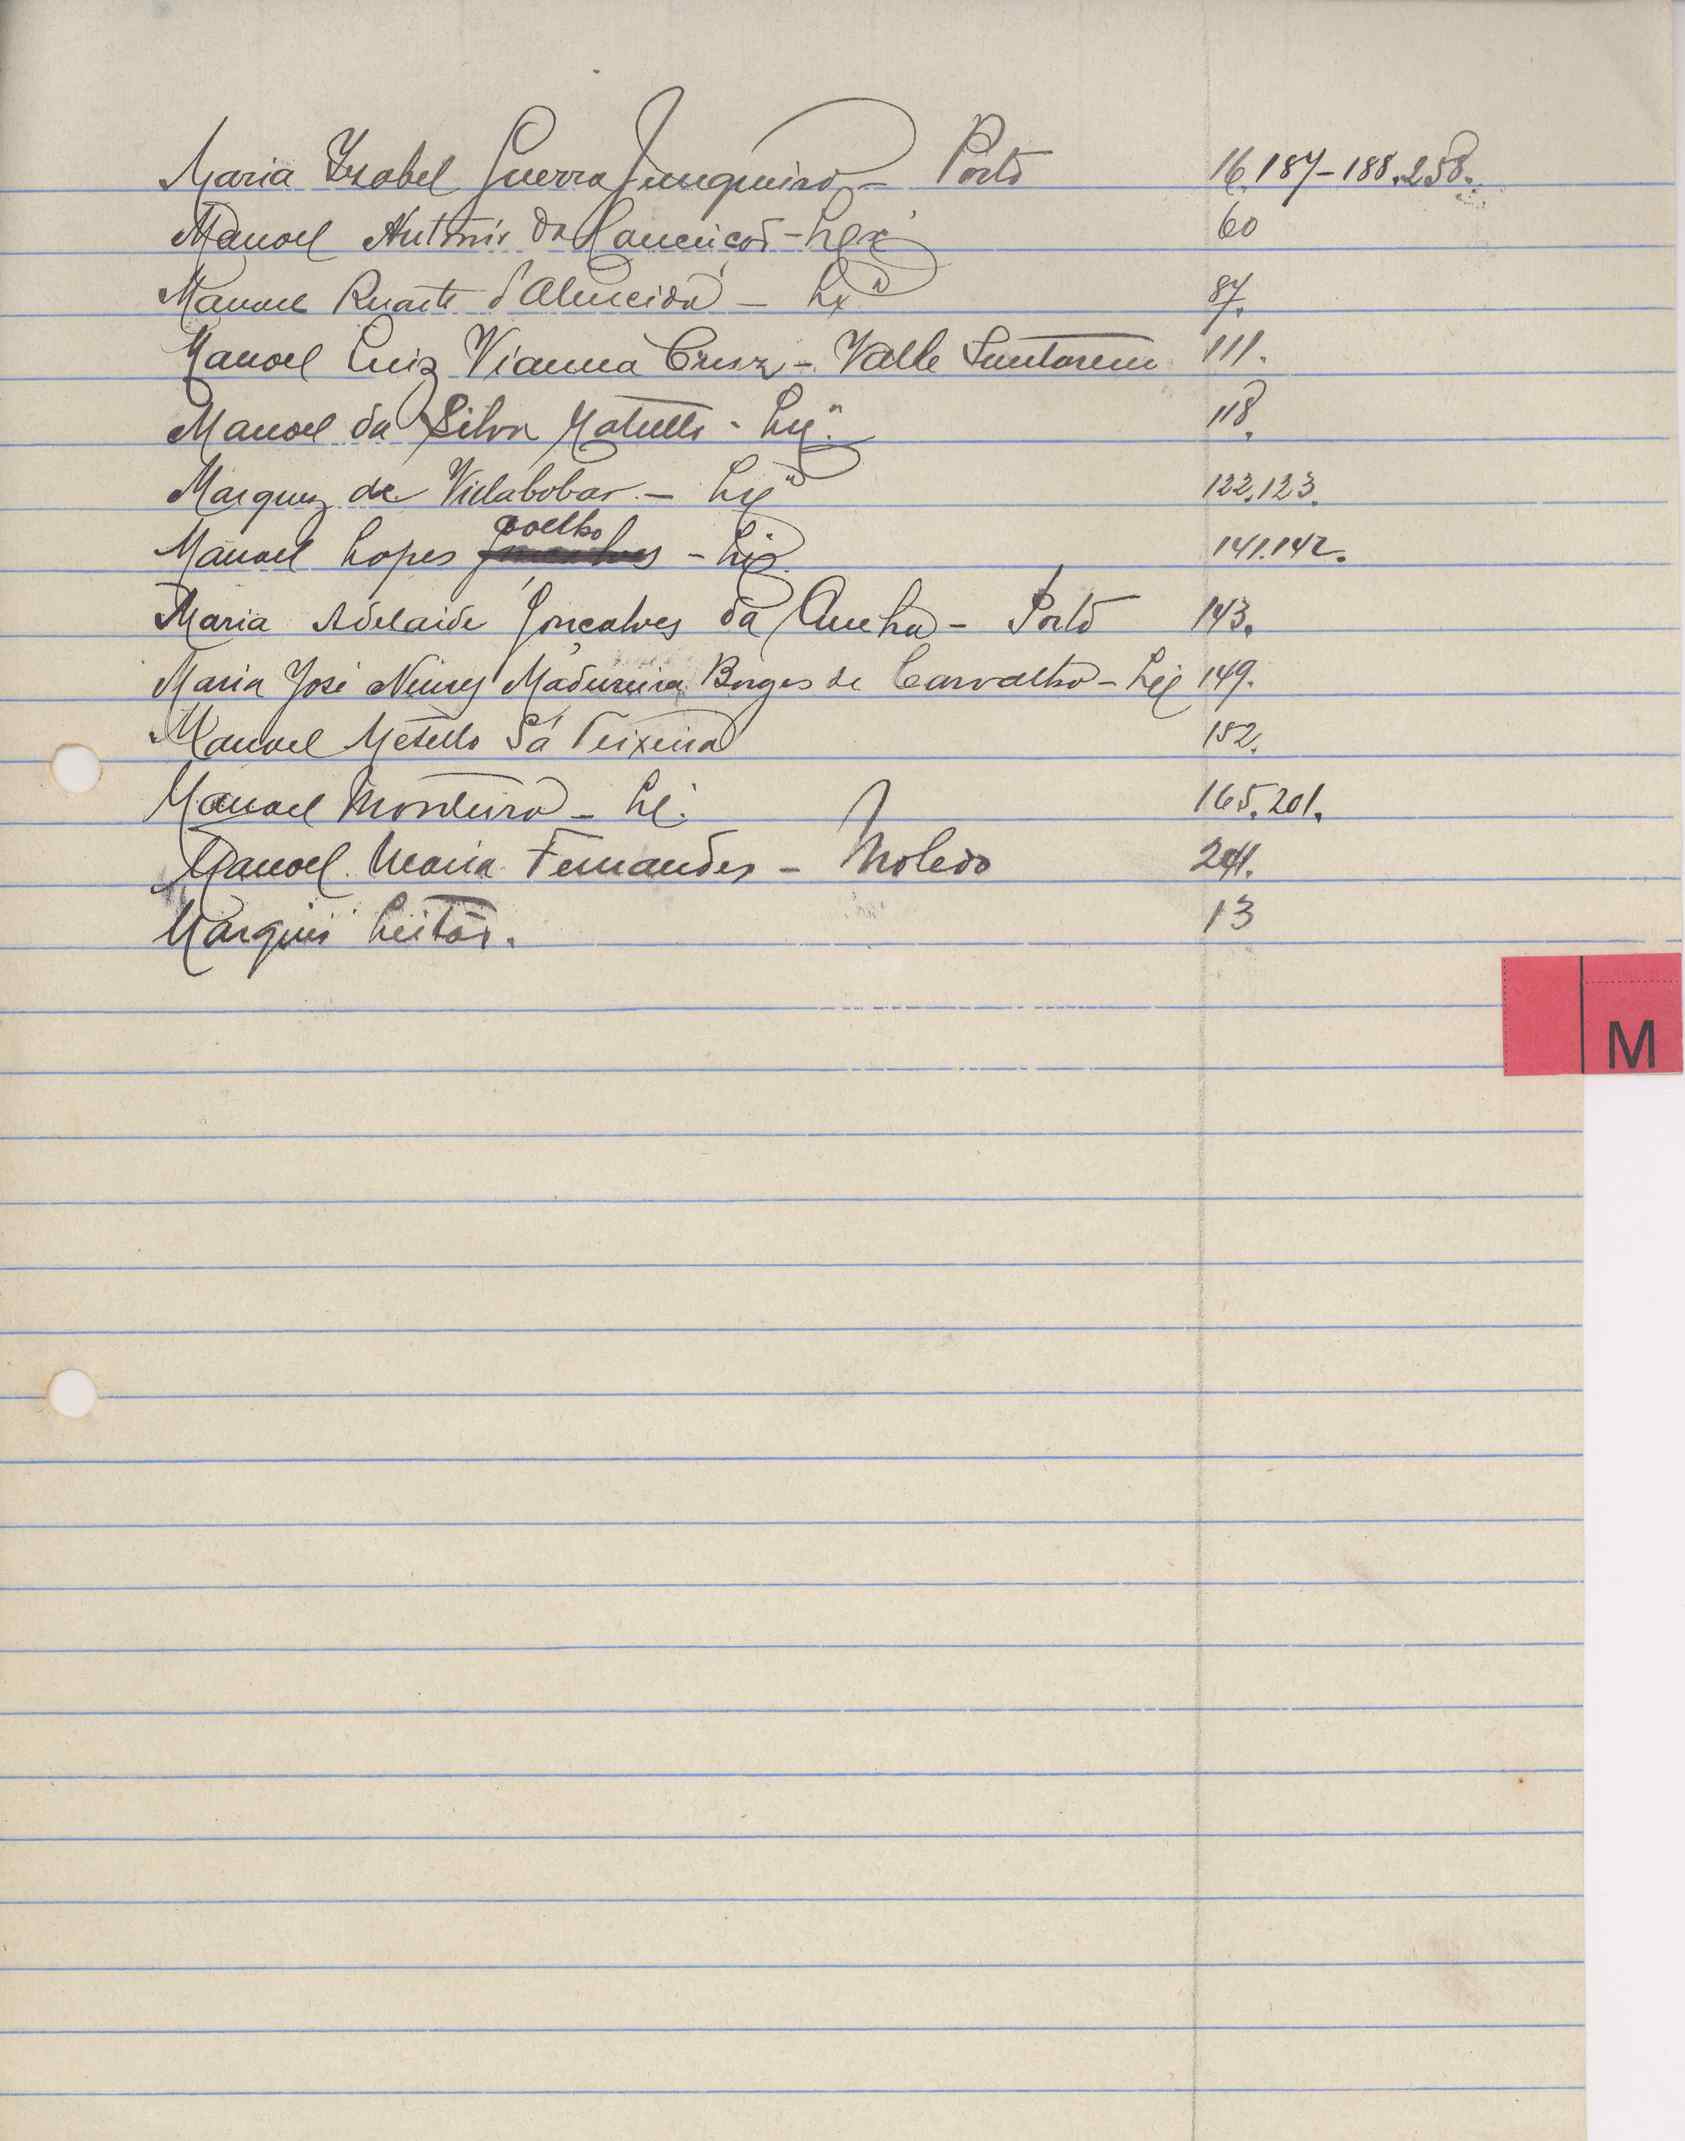 Maria Izabel Guerra Junqueiro - Porto 16.187-188.258.
Manoel Antonio da Lx.ª 60
Manoel Duarte d'Almeida - Lxª 87.
Manoel Luiz Vianna Cruz - Valle Santarem 111.
Manoel da Silva - Lxª 118.
Marquez de Villalobar - Lxª 122.123.
Manoel Lopes Coelho - Lix. 141.142.
Maria Adelaide Gonçalves da Cunha - Porto 143.
Maria José Nunes Madureira Borges de Carvalho - Lix 149.
Manoel Metello Sá Teixeira 152.
Manoel Monteiro - Lx. 165.201.
Manoel Maria Fernandes - Moledo 241.
Marques Leitão. 13
M